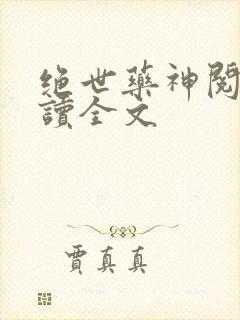 绝世药神閱
讀全文
賈真真